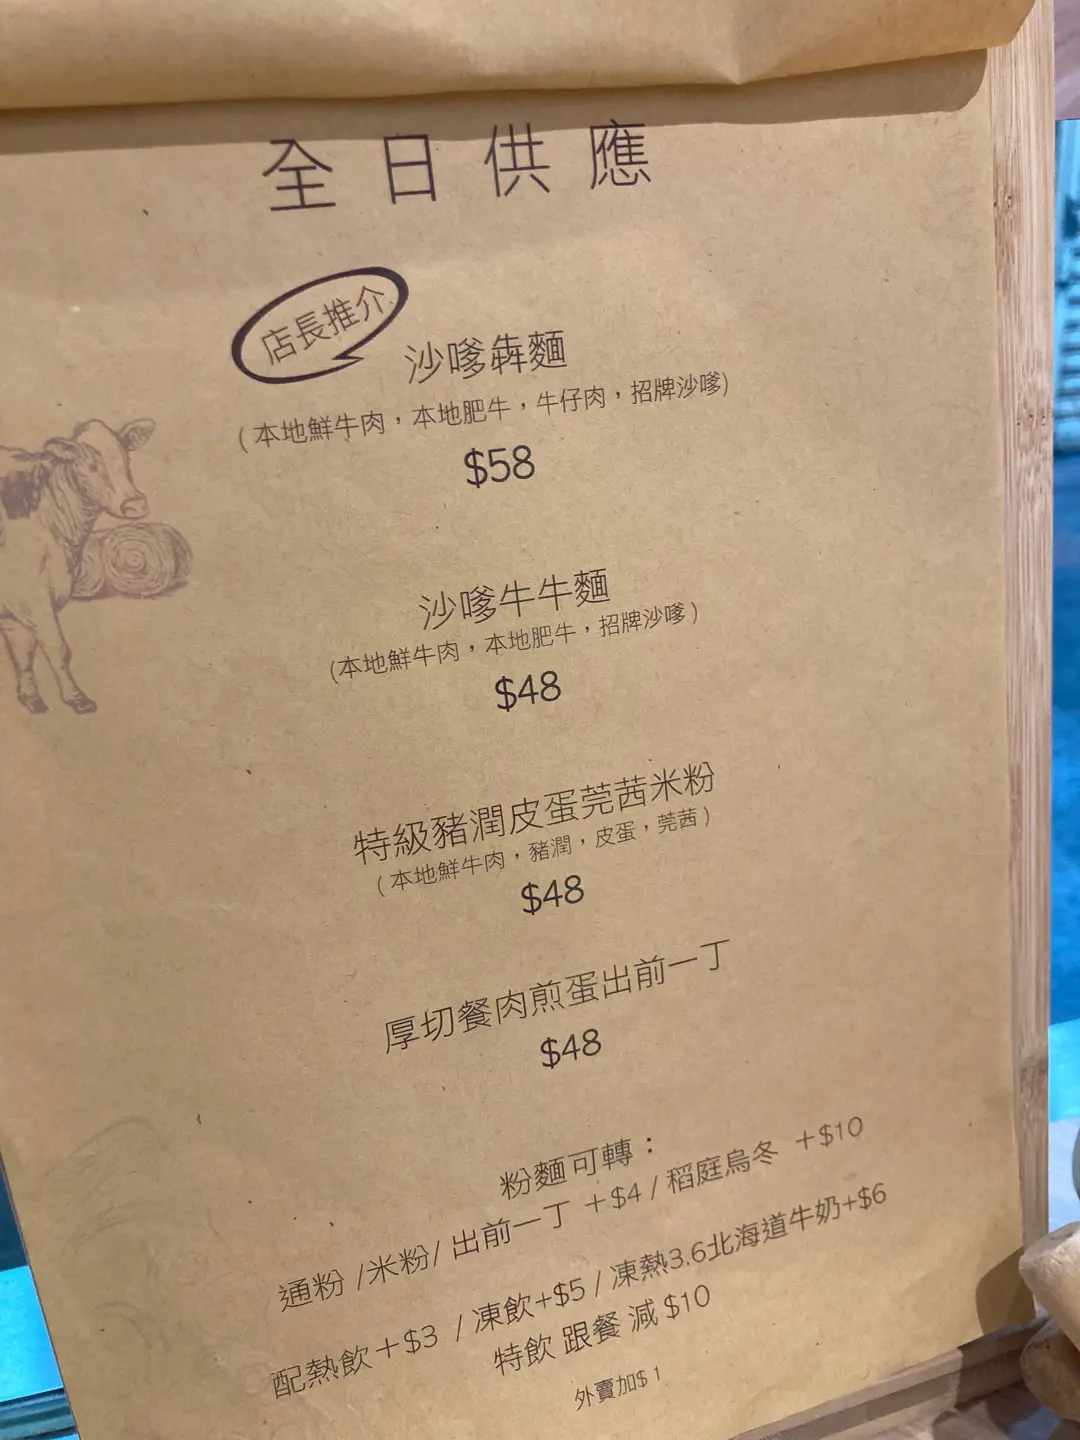 全日供應
店長推介
沙嗲犇麵
(本地鮮牛肉，本地肥牛，牛仔肉，招牌沙嗲)
$58
沙嗲牛牛麵
(本地鮮牛肉，本地肥牛，招牌沙嗲)
$48
特級豬潤皮蛋莞茜米粉
(本地鮮牛肉，豬潤，皮蛋，莞茜)
$48
厚切餐肉煎蛋出前一丁
$48
粉麵可轉：
通粉 /米粉/ 出前一丁 +$4 / 稻庭烏冬 +$10
配熱飲+$3 / 凍飲+$5 / 凍熱3.6北海道牛奶+$6
特飲 跟餐 減 $10
外賣加$ 1